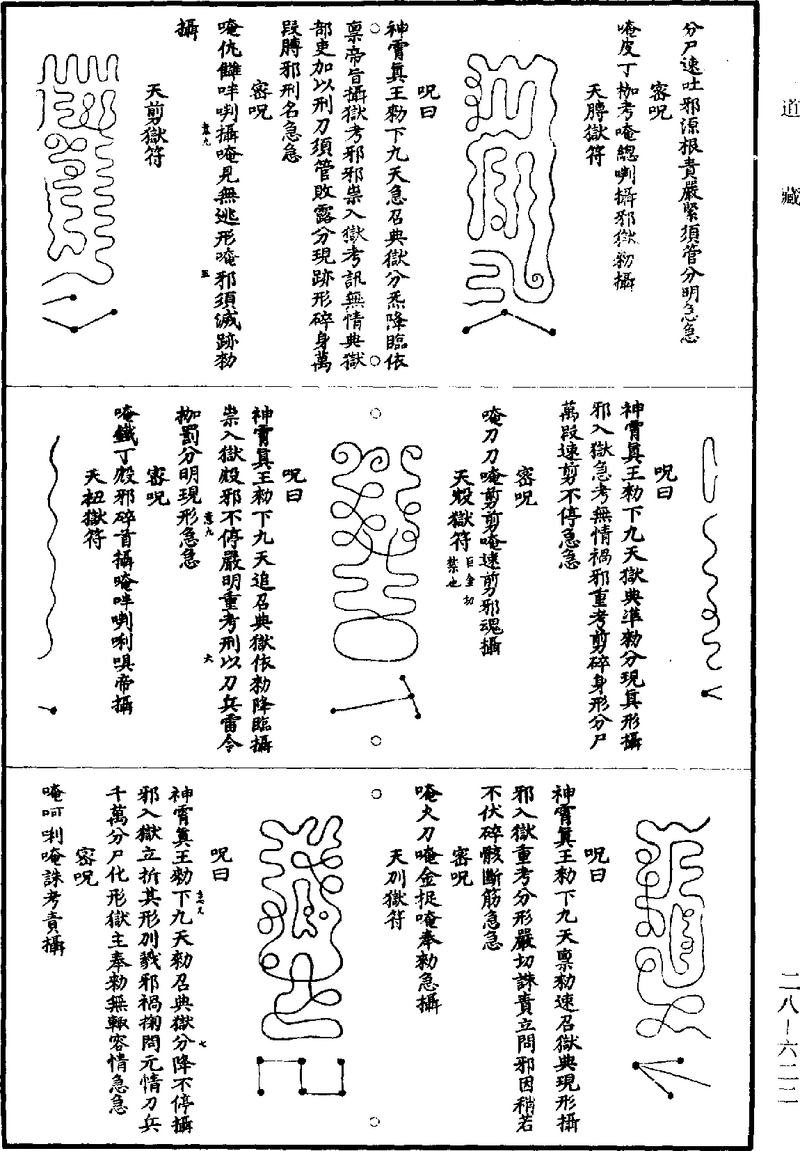 道藏
分尸速吐邪源根責嚴緊須管分明急急
密呪
唵皮丁枷考唵總喇攝邪獄勑攝
天膊獄符
呪曰
神霄真王勑下九天急召典獄分炁降臨依
稟帝旨攝獄考邪邪祟入獄考訊無情典獄
部吏加以刑刀須管敗露分現跡形碎身萬
段膊邪刑名急急
密呪
唵仇讎吽喇攝唵見無逃形唵邪須滅跡勑
攝
天剪獄符
呪曰
神霄真王勑下九天獄典準勑分現真形攝
邪入獄急考無情禍邪重考剪碎身形分尸
萬段速剪不停急急
密呪
唵刀刀唵剪剪唵速剪邪魂攝
天殺獄符
呪曰
神霄真王勑下九天追召典獄依勑降臨攝
祟入獄殺邪不停嚴明重考刑以刀兵雷令
枷罰分明現形急急
密呪
唵鐵丁殺邪碎首攝唵吽喇唎嗔帝攝
天杻獄符
呪曰
神霄真王勑下九天稟勑速召獄典現形攝
邪入獄重考分形嚴切誅責立問邪因稍若
不伏碎骸斷筋急急
密呪
唵火刀唵金捉唵奉勑急攝
天刖獄符
呪曰
神霄真王勑下九天勑召典獄分降不停攝
邪入獄立折其形刖戮邪禍掬問元情刀兵
千萬分尸化形獄主奉勑無輙容情急急
密呪
唵呵唎唵誅考責攝
二八—六二二